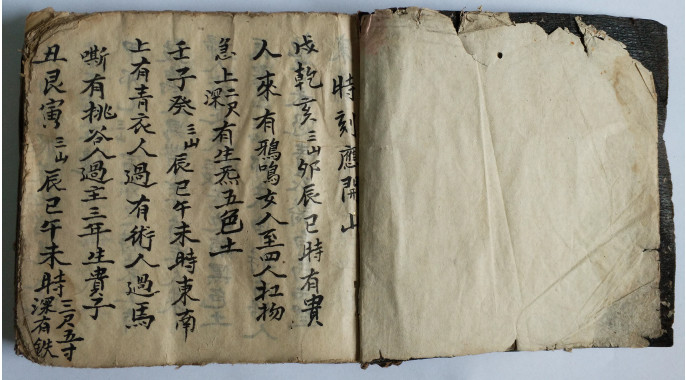 時刻應開山
戌乾亥三山夘辰巳時有貴
人來有鴉鳴女人至四人扛物
急上深二尺有生炁五色土
壬子癸三山辰巳午未時東南
上有青衣人過有術人過馬
嘶有挑谷人過主三年生貴子
丑艮寅三山辰巳午未時三尺五寸
深有鉄